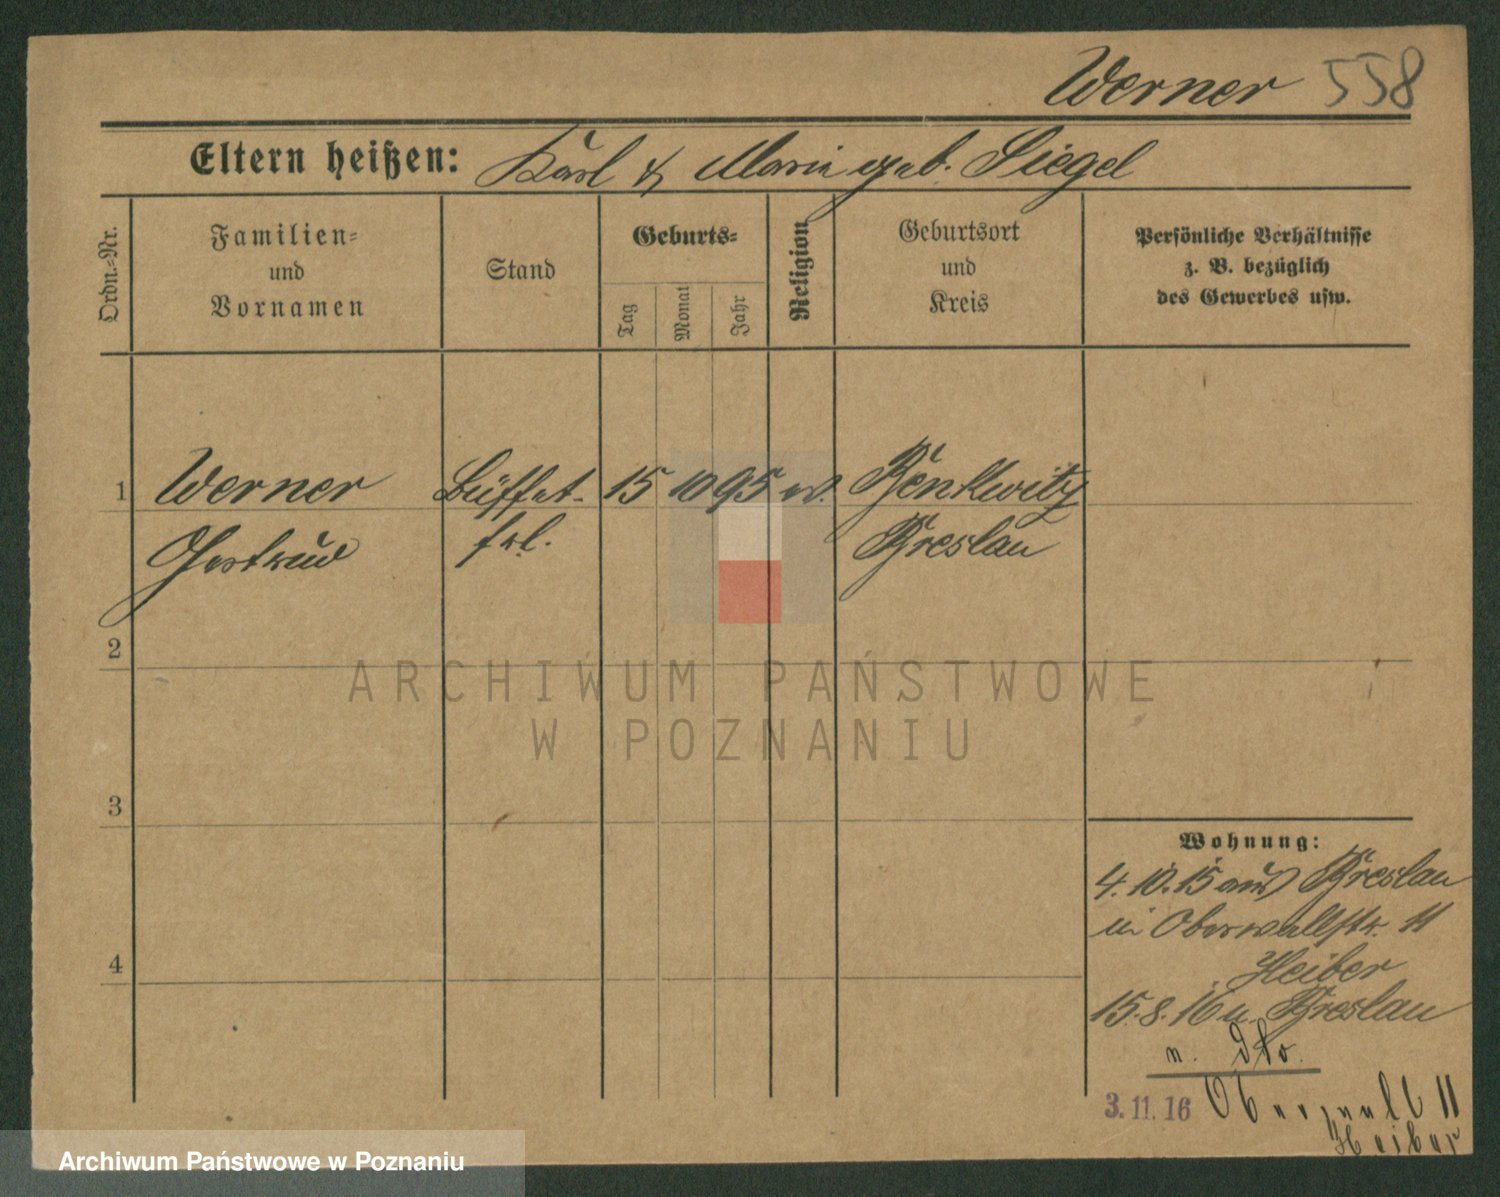 Werner 558
Eltern heißen: Karl & Marie geb. Siegel
Ordn.-Nr.
Familien-
und
Vornamen
Stand
Geburts-
Tag
Monat
Jahr
Religion
Geburtsort
und
Kreis
Persönliche Verhältnisse
z. B. bezüglich
des Gewerbes usw.
1 Werner Büffet- 15 10 95 ev. Benkwitz
Gertrud frl. Breslau
2
3
4
Wohnung:
4.10.15 aus Breslau
in Oberwallstr. 11
Heiber
15.8.16 n. Breslau
n. dto.
3.11.16 Oberwallt 11
Heiber
ARCHIWUM PAŃSTWOWE
W POZNANIU
Archiwum Państwowe w Poznaniu